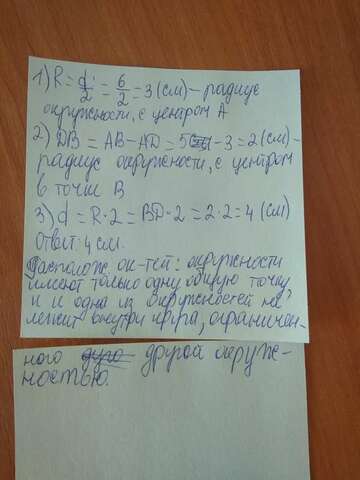 1) R = d/2 = 6/2 = 3 (см) – радиус
окружности, с центром А
2) DB = AB – AD = 5 – 3 = 2 (см) –
радиус окружности, с центром
в точке B
3) d = R · 2 = BD · 2 = 2 · 2 = 4 (см)
Ответ: 4 см.
Располож. ок-тей: окружности
имеют только одну общую точку,
и одна из окружностей на
лежит внутри круга, ограничен-
ного другой окруж-
ностью.